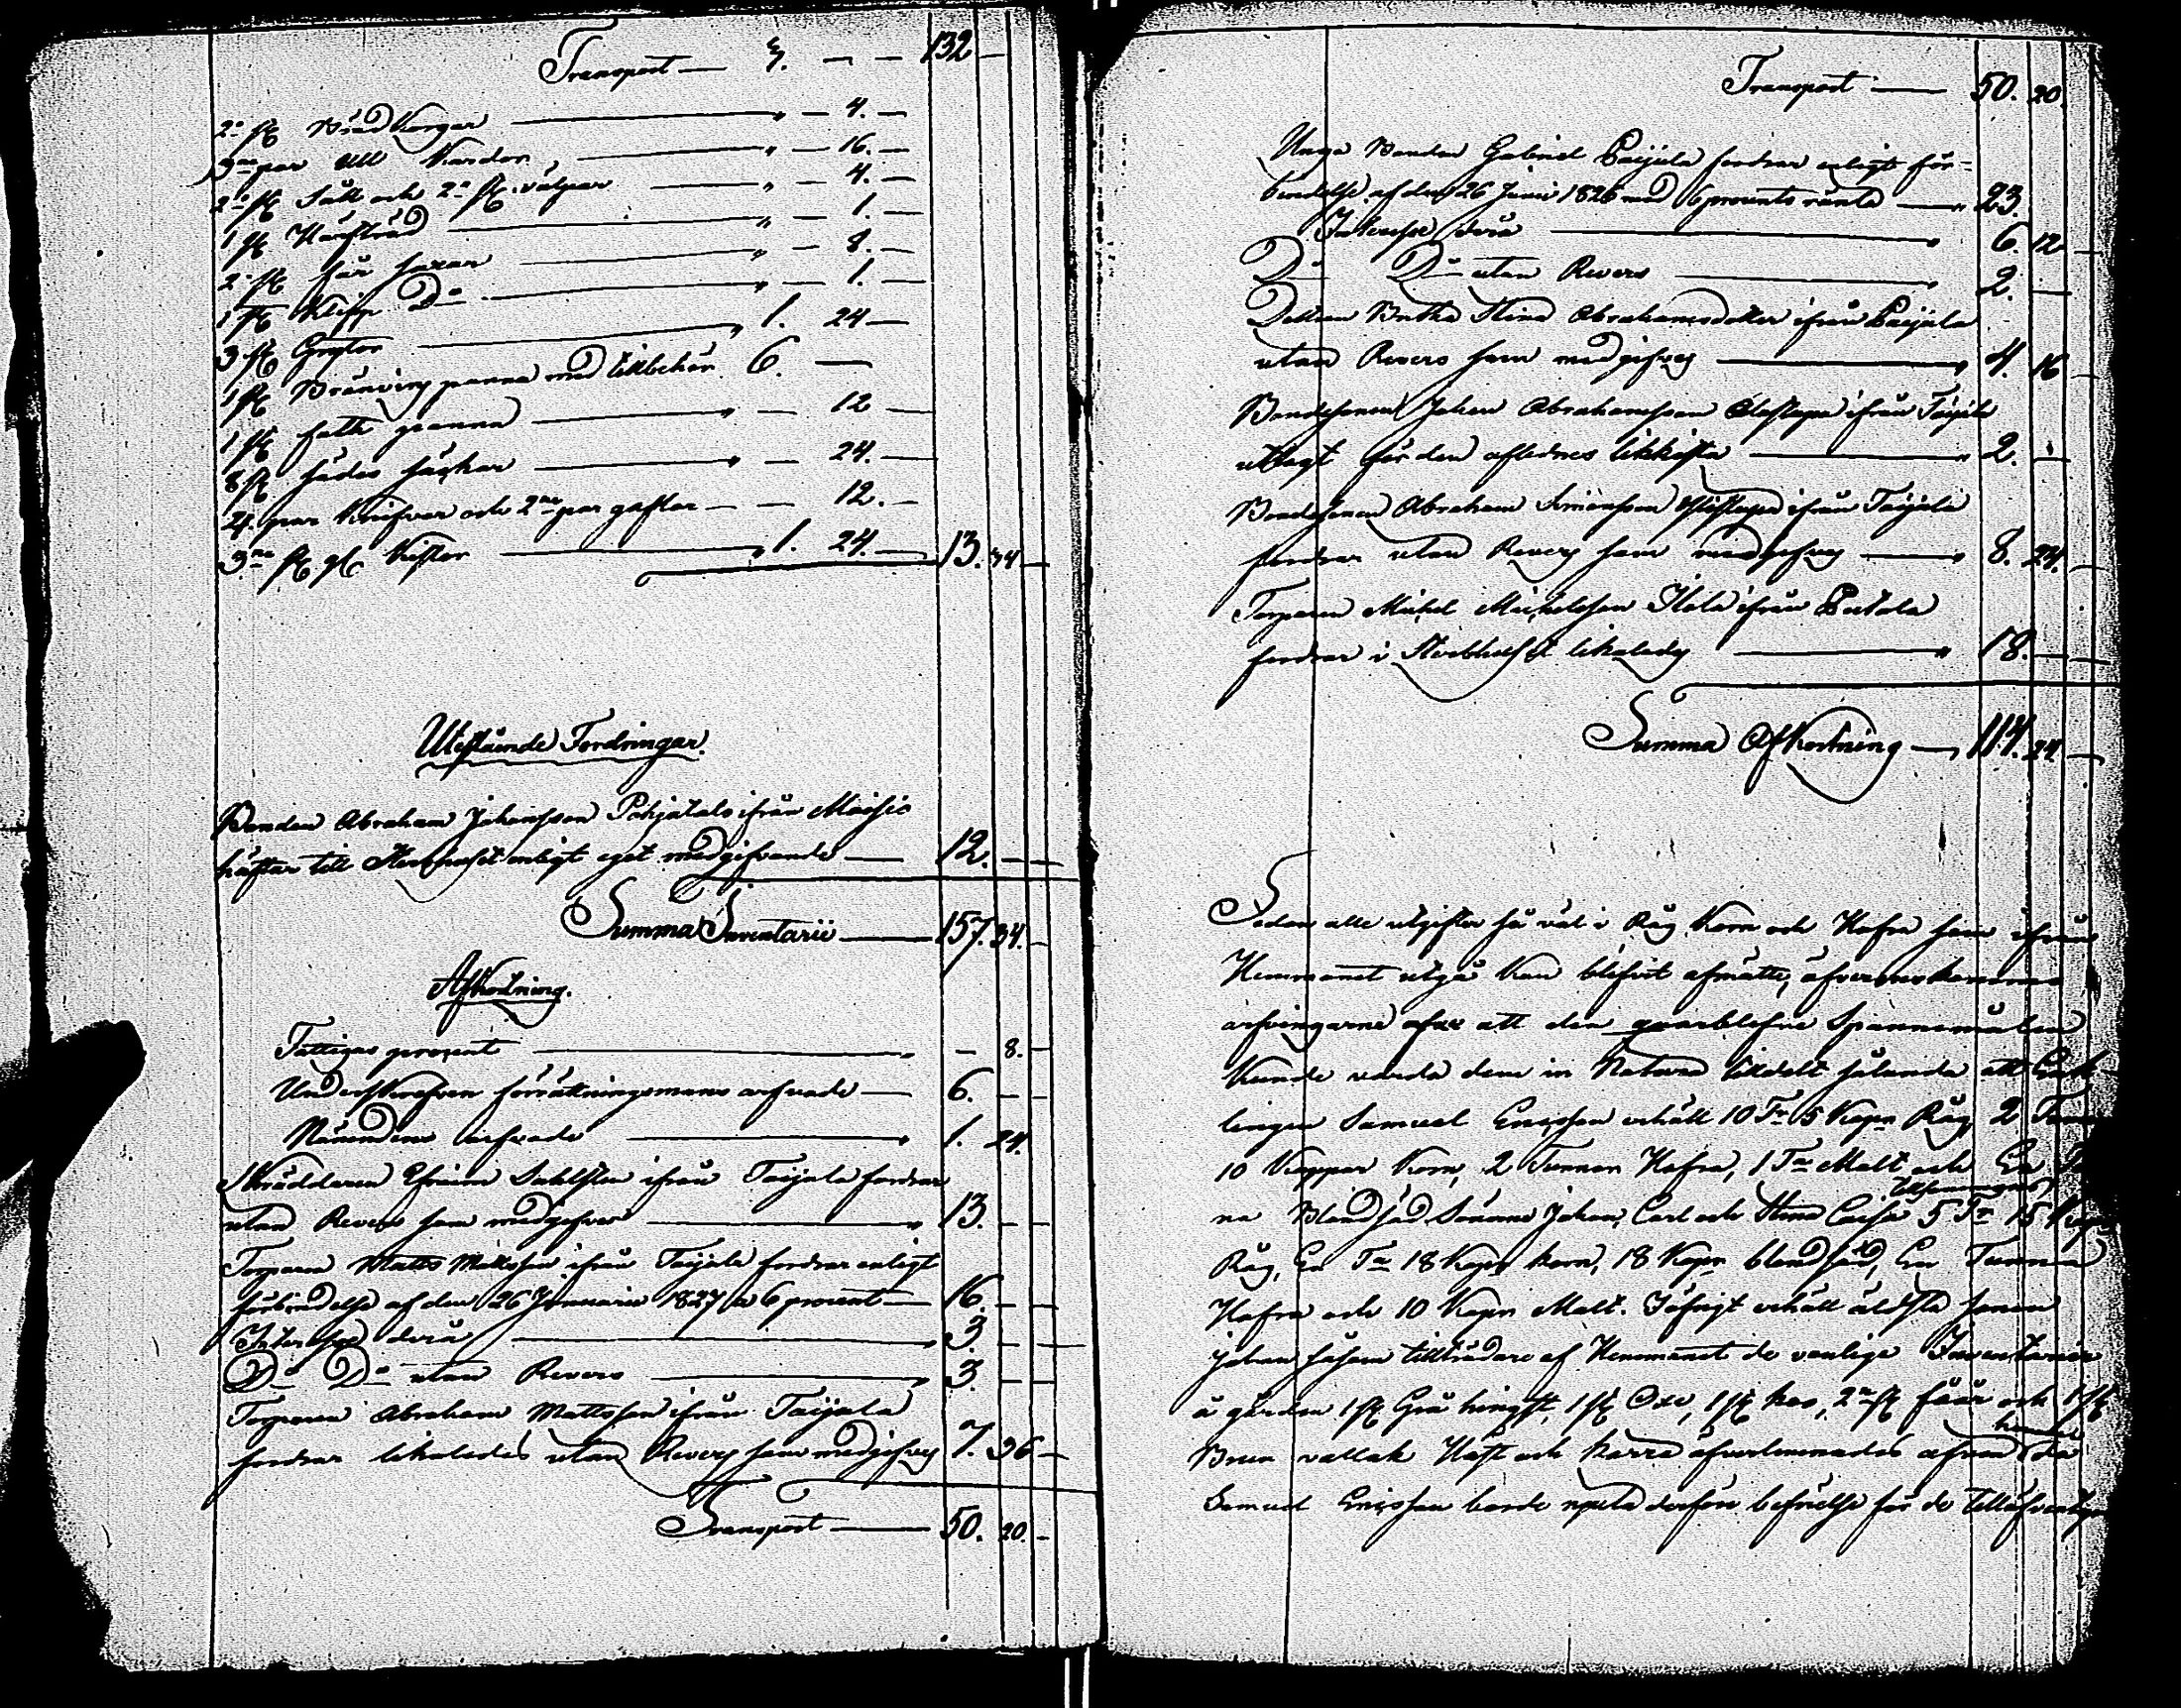 Transport — — — 132 —
2ne st Brödkorgar — " — 4. —
3ne par Ull Kardor — " — 16. —
2ne st Såll och 2ne st — " — 4. —
1 st — " — 1. —
2ne st får saxar — " — 8. —
1 st Klipp Do — " — 1. —
3 st Grytor — " 1. 24 —
1 st Bränvins panna med tillbehör 6. —
1 st fath panna — " — 12 —
8 st sädes säckar — " — 24. —
4 par Knifvar och 2ne par gafflar — — 12. —
3ne st gl Kistor — " 1. 24. — 13. 34 —
Utestående Fordringar.
Bonden Abraham Johansson Pohjatalo ifrån Maisio
häftar till Sterbhuset enligt eget medgifvande — 12. —
Summa Inventarii — 157. 34. —
Afkortning.
Fattigas procent — " — 8. —
Underskrefven förrättningsmans arfvode — 6. — —
Nämndens arfvode — " 1. 24.
Skräddaren Efraim Sahlsten ifrån Taipale fordrar
utan Revers som medgifves — " 13. — —
Torparen Matts Mattsson ifrån Taipale fordrar enligt
förbindelse af den 26 Januarii 1827 a 6 procent — 16. — —
Interesse derå — " 3. — —
Do Do utan Revers — " 3. — —
Torparen Abraham Mattsson ifrån Taipale
fordrar likaledes utan Revers som medgifves 7. 36 —
Transport — 50. 20. —
Transport — 50. 20.
Unga Bonden Gabriel fordrar enligt för-
bindelse af den 26 Junii 1826 med 6 procents ränta — " 23.
Interesse derå — " 6. 12. —
Do Do utan Revers — " 2. —
Dottren Stina Abrahamsdotter ifrån
utan Revers som medgifves — " 4. 16 —
Bondesonen Johan Abrahamsson ifrån Taipale
utlagt för den aflednes likkista — " 2. —
Bondesonen Abraham Simonsson ifrån Taipale
fordrar utan Revers som medgifves — " 8. 24. —
Torparen Michel Michelsson ifrån
fordrar i Sterbhuset likaledes — " 18. — —
Summa Afkortning — 114. 24 —
Sedan alla utgifter så väl i Råg Korn och Hafra som ifrån
Hemmanet utgå kan blifvit afmätte, öfverenskommo
arfvingarne att den qvarblefne Spannemålen
kunde varda dem in Natura tilldelt sålunda att
lingen Samuel Ericsson erhåll 10 Tr 5 Kapr Råg, 2
10 Kappar Korn, 2 Tunnor Hafra, 1 Ta Malt och En
na Blandsäd Sönerne Johan, Carl och Stina Caisa tillsammans 5 Tr 15
Råg, En Ta 18 Kapr korn, 18 Kapr blandsäd, En Tunna
Hafra och 10 Kapr Malt. Töfrigt erhåll äldsta sonen
Johan såsom tillträdare af Hemmanet de vanlige Inventarier
å gården 1 st Grå hingst, 1 st Oxe, 1 st ko, 2ne st får och 1 st
Brun vallak Häst och kärra öfverlemnades
Samuel Ericsson borde njuta derföre befrielse för de